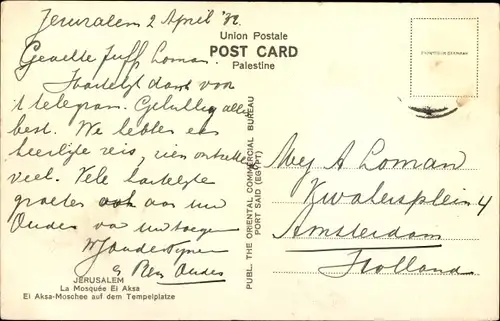 Jerusalem 2 April '32.
Geachte Juff. Loman.
Hartelijk dank voor
't telegram. Gelukkig alles
best. We hebben een
heerlijke reis, zien ontzettend
veel. Vele hartelijke
groeten ook aan uw
Ouders van uw toegen.
Ouders
Union Postale
POST CARD
Palestine
PUBL. THE ORIENTAL COMMERCIAL BUREAU
PORT SAID (EGYPT)
Mej A Loman
Kwakersplein 4
Amsterdam
Holland
JERUSALEM
La Mosquée El Aksa
El Aksa-Moschee auf dem Tempelplatze